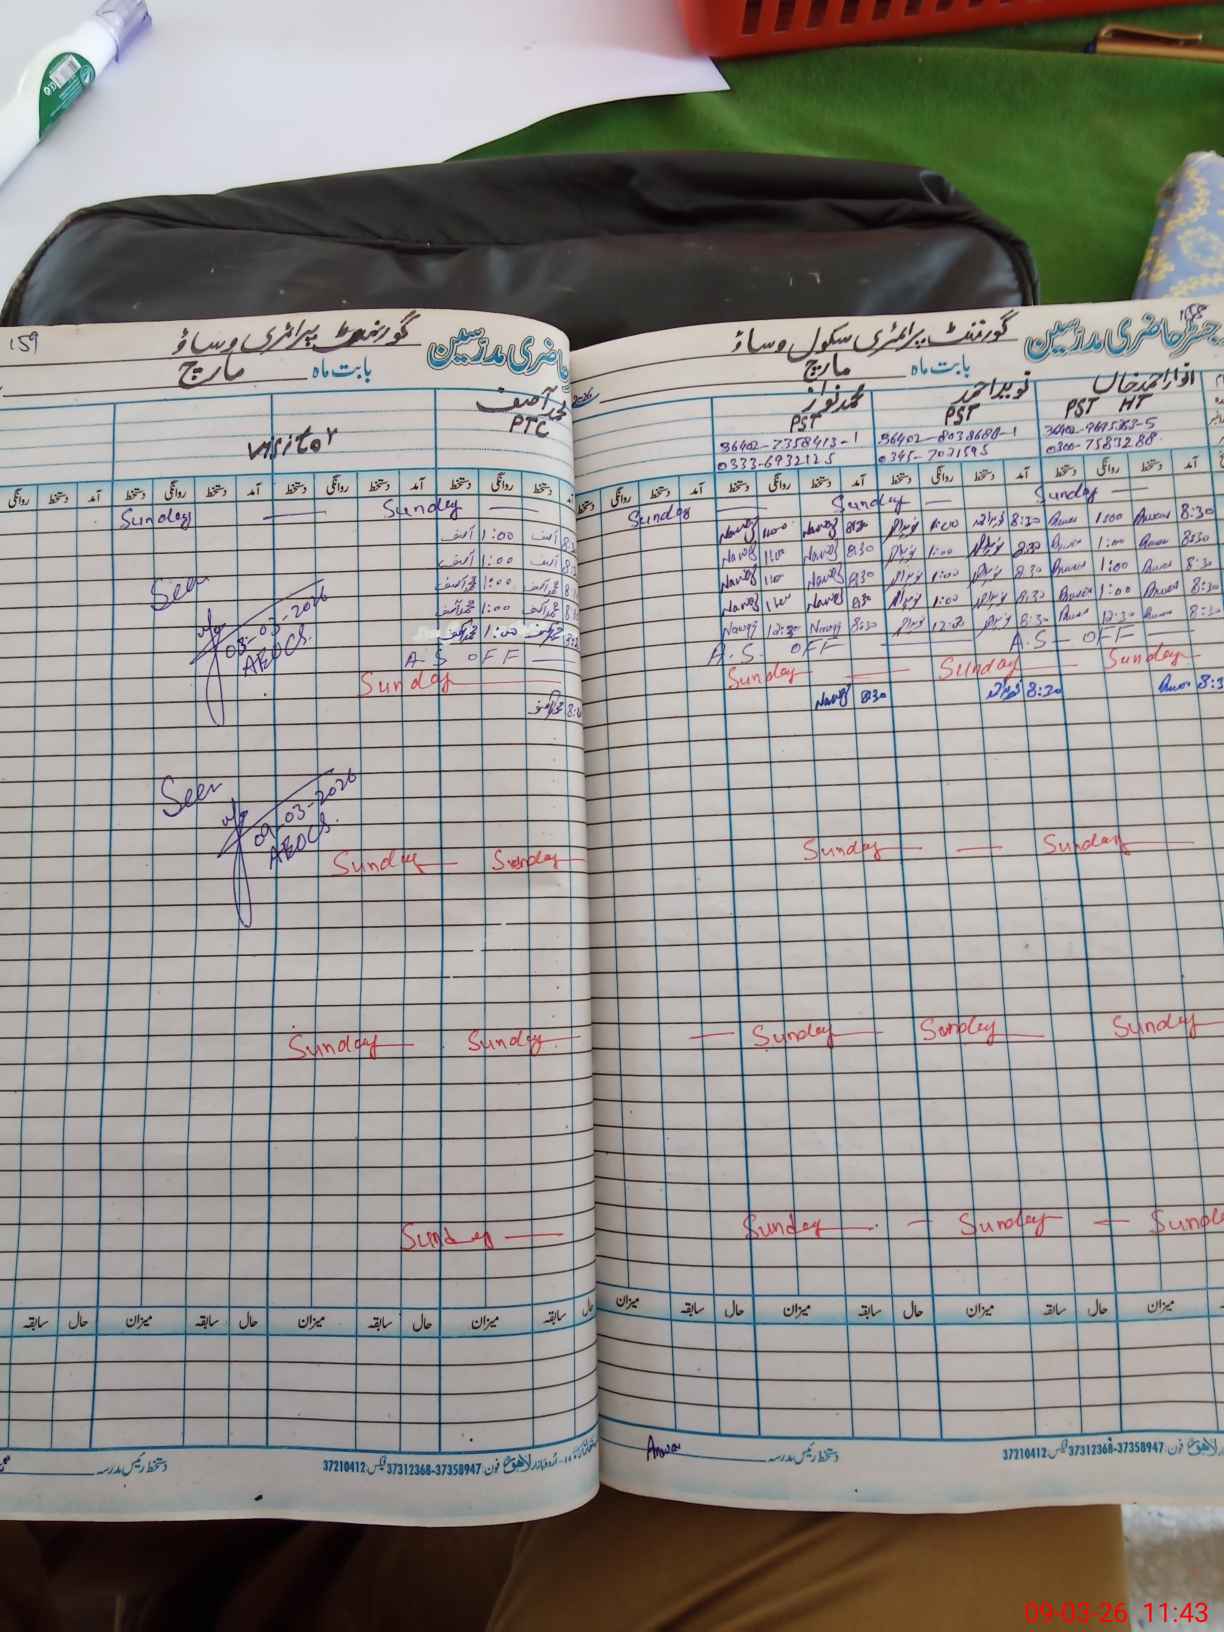 159
گورنمنٹ پرائمری وساؤ
حاضری مدرسین
بابت ماہ مارچ
محمد آصف
PTC
Visitor
آمد دستخط روانگی دستخط آمد دستخط روانگی دستخط آمد دستخط روانگی
Sunday Sunday
آصف 1:00 آصف
آصف 1:00 آصف
محمد آصف 1:00 محمد آصف
محمد آصف 1:00 محمد آصف
1:00
A.S OFF
Sunday
Seen
03-03-2026
AEOCS.
Seen
09-03-2026
AEOCS.
Sunday Sunday
Sunday Sunday
Sunday
حال سابقہ میزان حال سابقہ میزان حال سابقہ میزان حال سابقہ
دستخط رئیس مدرسہ
لاہور فون: 37358947-37312368 فیکس: 37210412
158
رجسٹر حاضری مدرسین
گورنمنٹ پرائمری سکول وساؤ
بابت ماہ مارچ
2026
انوار احمد خاں
PST HT
0300-7583288
نوید احمد
PST
36402-8038688-1
0345-7031595
محمد نواز
PST
36402-7358413-1
0333-6932125
آمد دستخط روانگی دستخط آمد دستخط روانگی دستخط آمد دستخط روانگی دستخط آمد دستخط روانگی
Sunday Sunday Sunday
Nawaz 1:00 Nawaz 8:30 1:00 8:30 Anwar 1:00 Anwar 8:30
Nawaz 1:00 Nawaz 8:30 1:00 8:30 Anwar 1:00 Anwar 8:30
Nawaz 1:00 Nawaz 8:30 1:00 8:30 Anwar 1:00 Anwar 8:30
Nawaz 1:00 Nawaz 8:30 1:00 8:30 Anwar 1:00 Anwar 8:30
Nawaz 12:30 Nawaz 8:30 12:30 8:30 Anwar 12:30 Anwar 8:30
A.S. OFF A.S - OFF
Sunday Sunday Sunday
Nawaz 8:30 8:30 Anwar 8:3
Sunday Sunday
Sunday Sunday Sunday
Sunday Sunday Sund
میزان حال سابقہ میزان حال سابقہ میزان حال سابقہ میزان
Anwar
دستخط رئیس مدرسہ
لاہور فون: 37358947-37312368 فیکس: 37210412
09-03-26 11:43